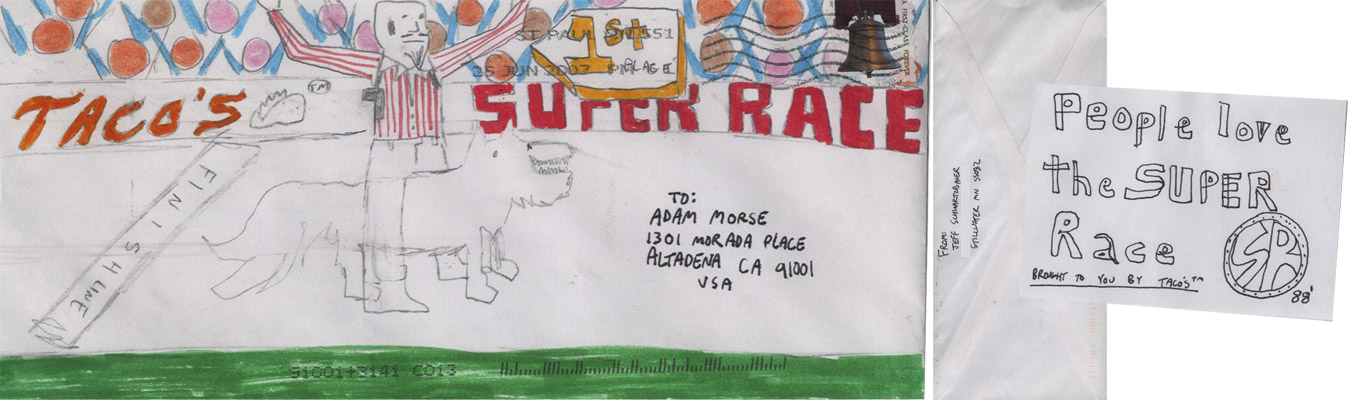 ST PAUL MN 551
25 JUN 2007 PM
1st
PLACE
A FIRST-CLASS FOREVER
TACO'S
TM
SUPER RACE
FINISH LINE
TO:
ADAM MORSE
1301 MORADA PLACE
ALTADENA CA 91001
USA
91001+3141 C013
FROM:
JEFF SCHWARTZBAUER
STILLWATER MN 55082
People love
the SUPER
Race
SR
BROUGHT TO YOU BY TACO'S™
88'